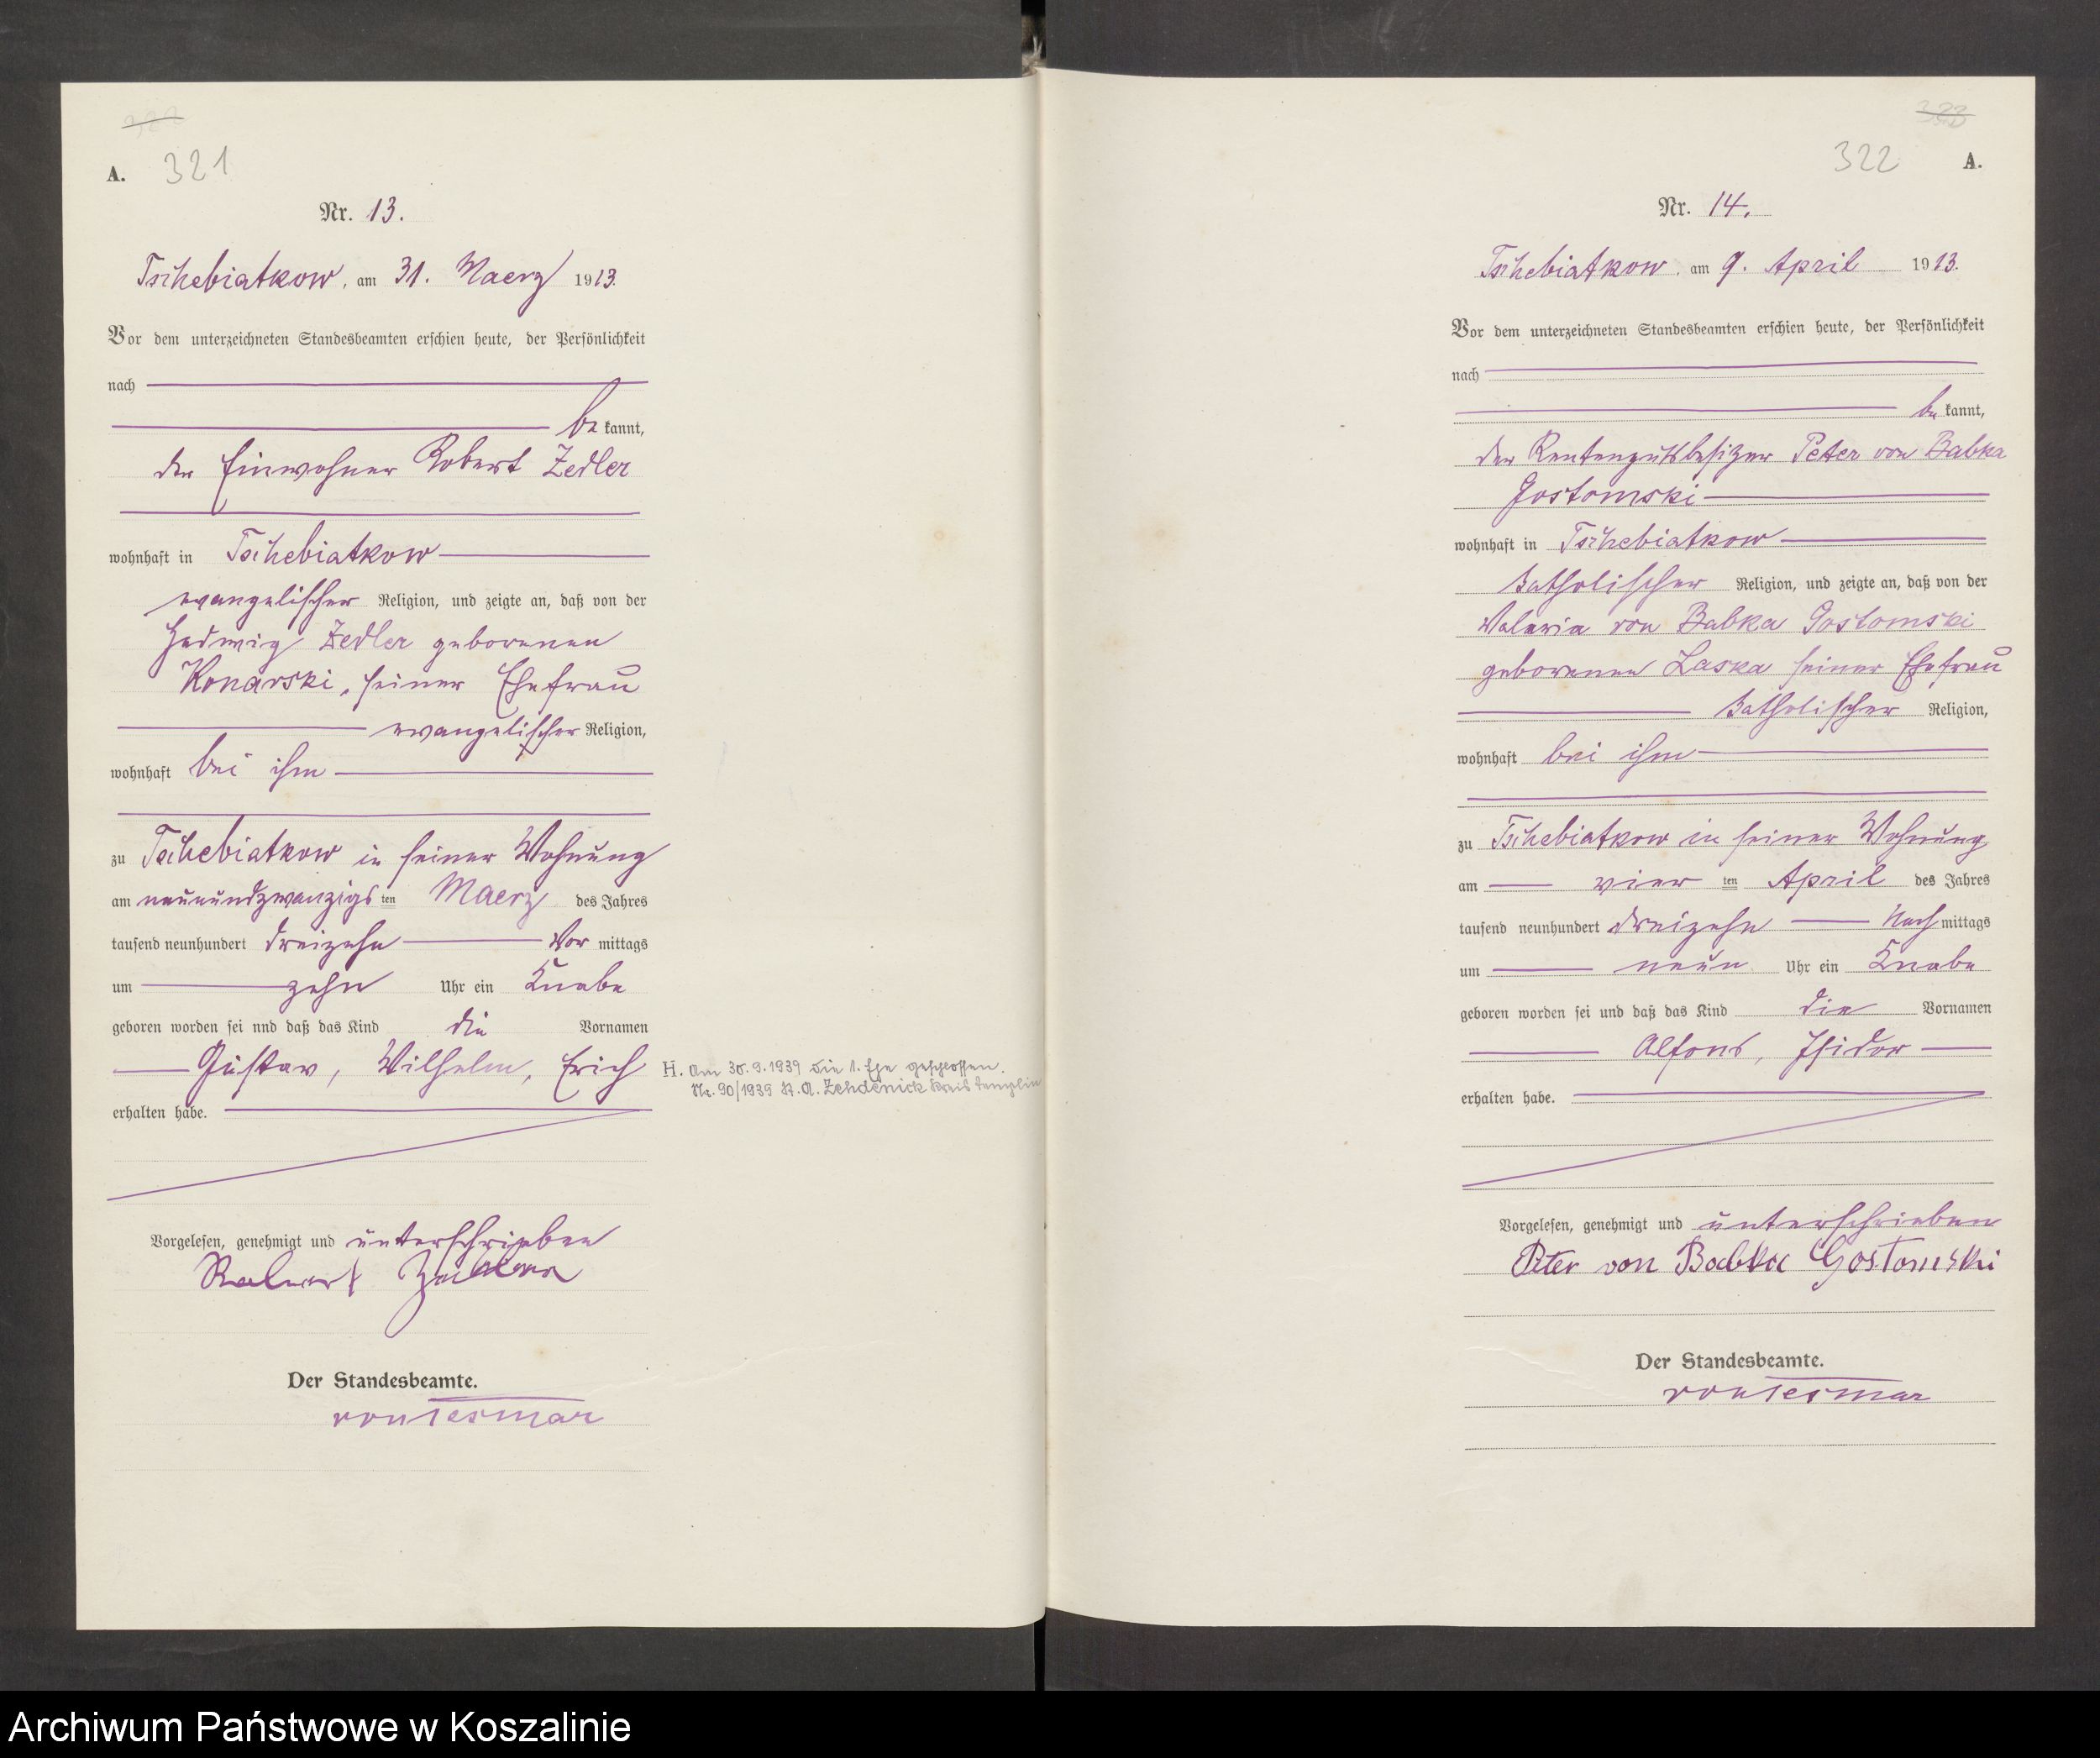 A. 321
Nr. 13.
Tschebiatkow, am 31. Maerz 1913.
Vor dem unterzeichneten Standesbeamten erschien heute, der Persönlichkeit
nach
be kannt,
der Einwohner Robert Zedler
wohnhaft in Tschebiatkow
evangelischer Religion, und zeigte an, daß von der
Hedwig Zedler geborenen
Konarski, seiner Ehefrau
evangelischer Religion,
wohnhaft bei ihm
zu Tschebiatkow in seiner Wohnung
am neunundzwanzigs ten Maerz des Jahres
tausend neunhundert dreizehn Vor mittags
um zehn Uhr ein Knabe
geboren worden sei nnd daß das Kind die Vornamen
Gustav, Wilhelm, Erich
H. Am 30.9.1939 die 1. Ehe geschlossen.
Nr. 90/1939 St. A. Zehdenick Kreis Templin
erhalten habe.
Vorgelesen, genehmigt und unterschrieben
Robert
Der Standesbeamte.
von Tesmar
322 A.
Nr. 14.
Tschebiatkow, am 9. April 1913.
Vor dem unterzeichneten Standesbeamten erschien heute, der Persönlichkeit
nach
be kannt,
der Rentengutsbesitzer Peter von Babka
Gostomski
wohnhaft in Tschebiatkow
katholischer Religion, und zeigte an, daß von der
Valeria von Babka Gostomski
geborenen Laska seiner Ehefrau
katholischer Religion,
wohnhaft bei ihm
zu Tschebiatkow in seiner Wohnung
am vier ten April des Jahres
tausend neunhundert dreizehn Nach mittags
um neun Uhr ein Knabe
geboren worden sei und daß das Kind die Vornamen
Alfons, Isidor
erhalten habe.
Vorgelesen, genehmigt und unterschrieben
Peter von Babka Gostomski
Der Standesbeamte.
von Tesmar
Archiwum Państwowe w Koszalinie